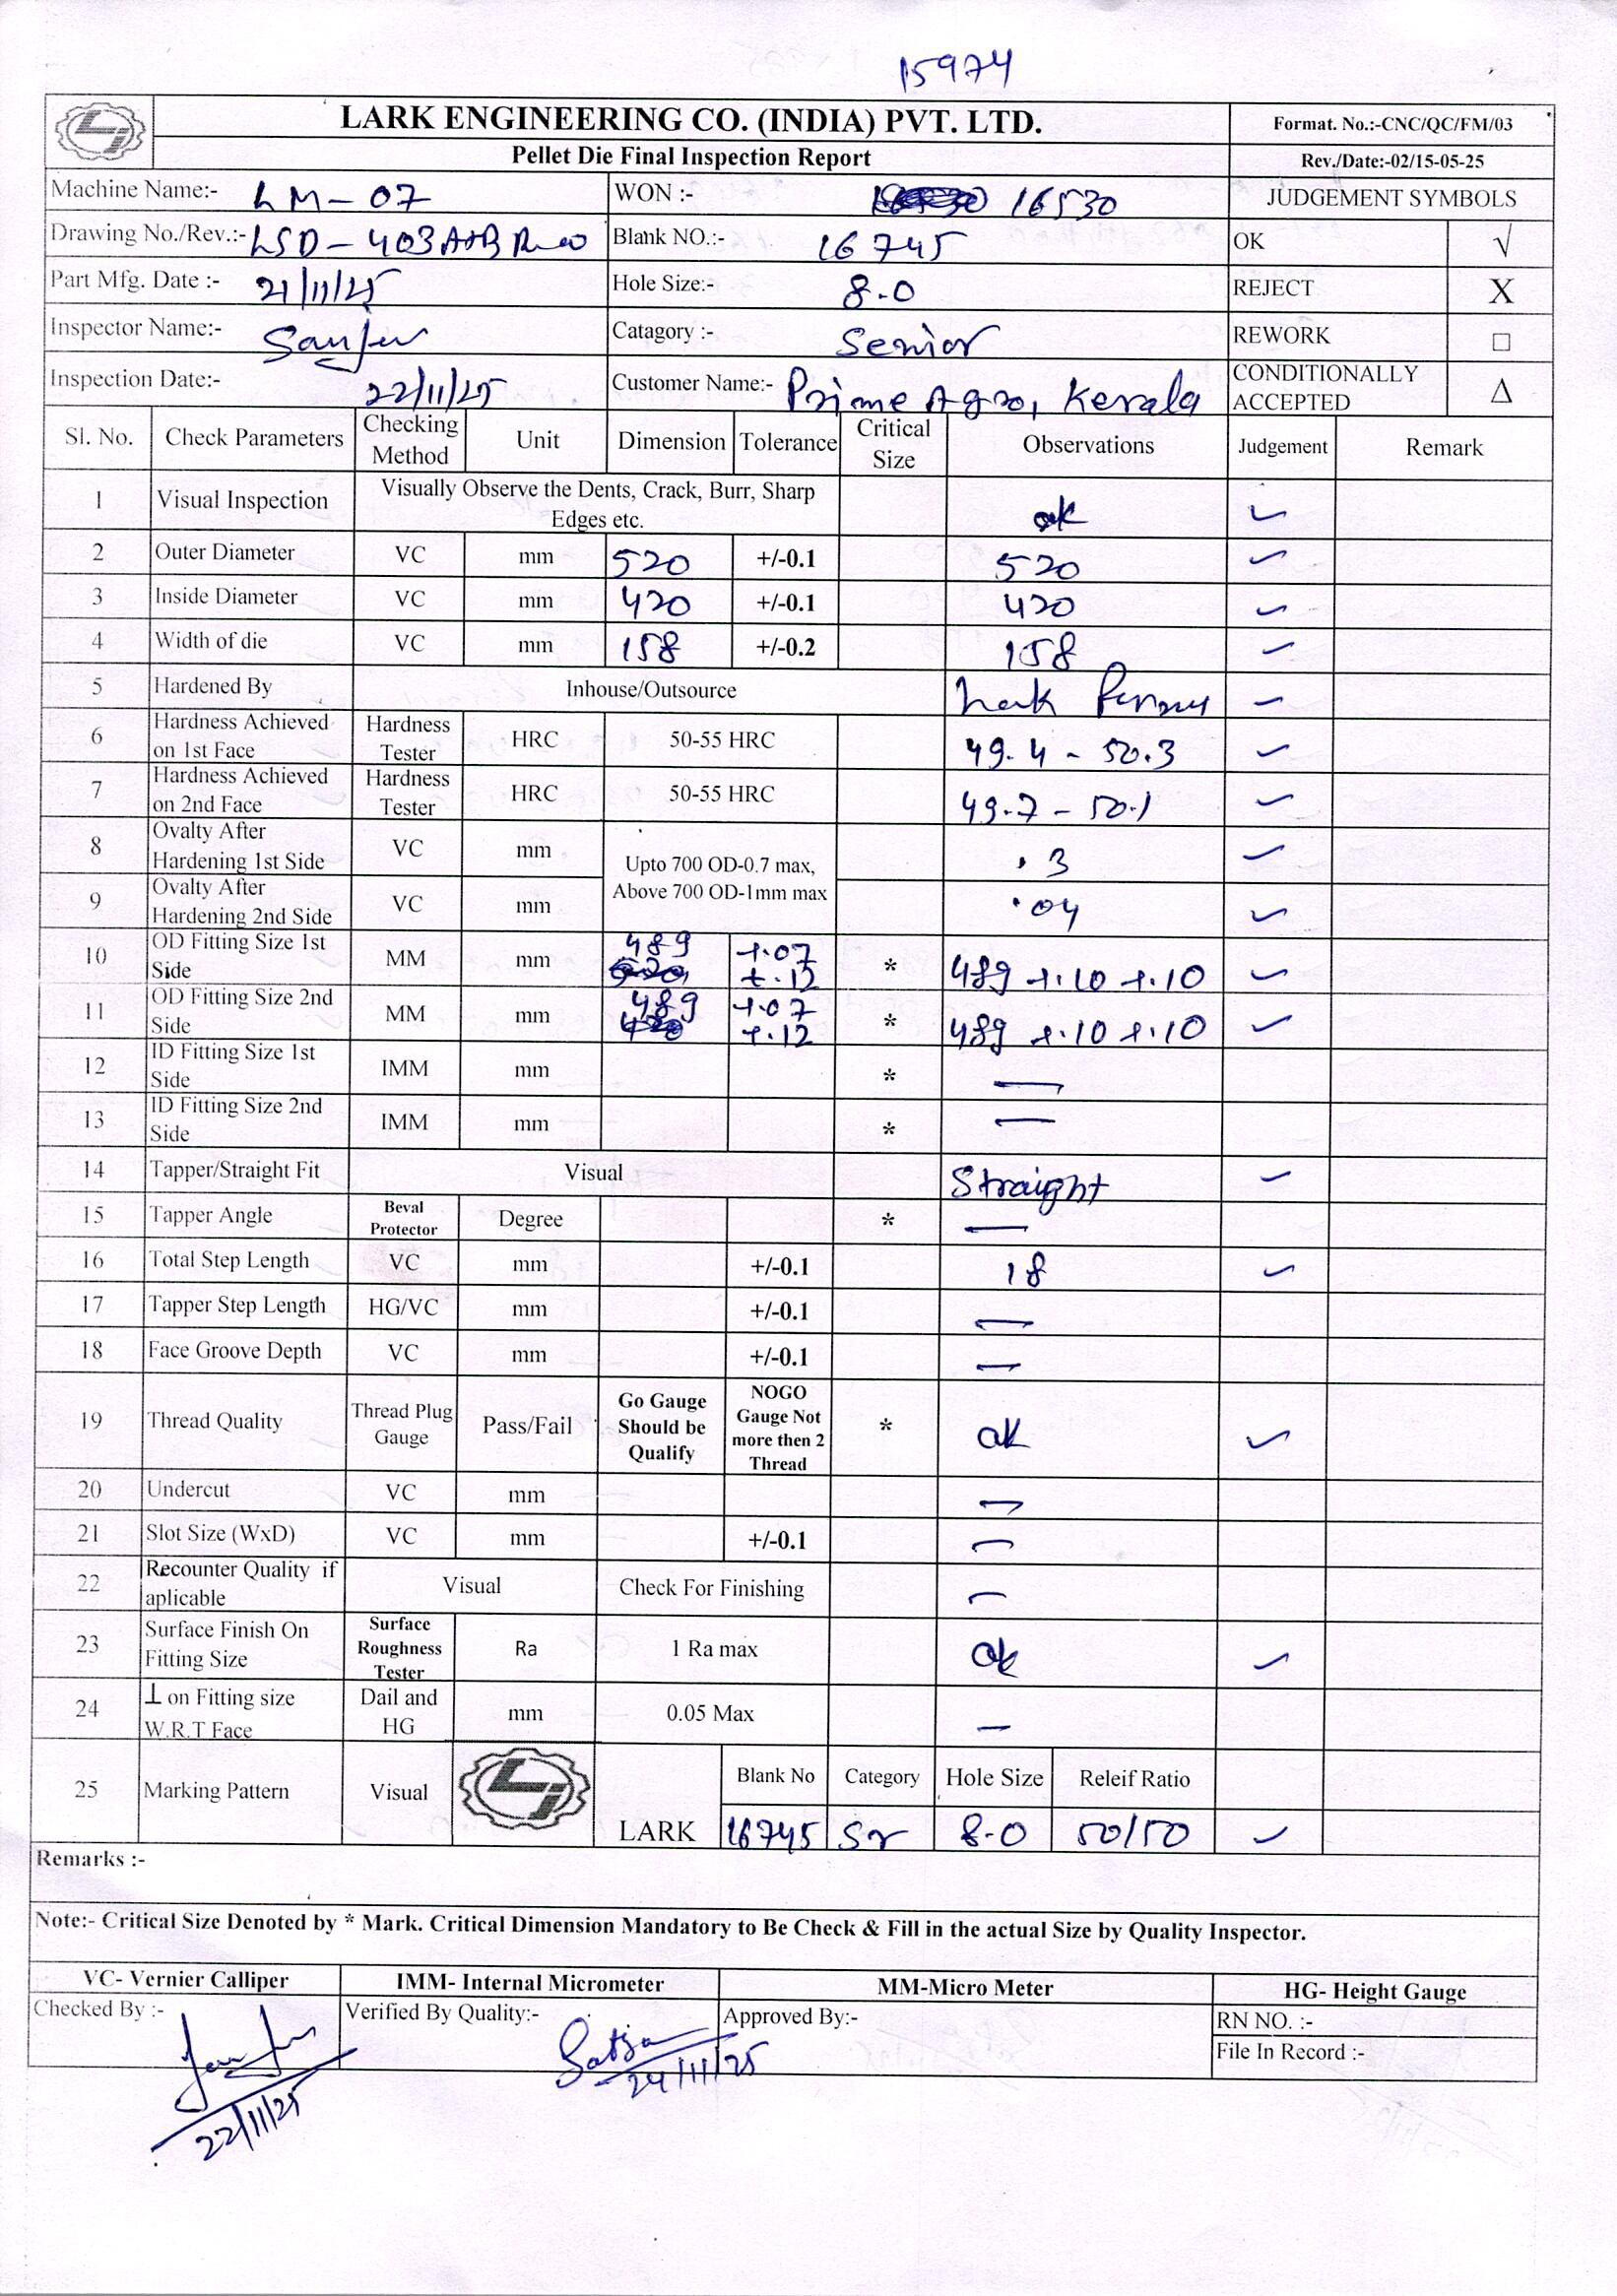 15974
LARK ENGINEERING CO. (INDIA) PVT. LTD.
Format. No.:-CNC/QC/FM/03
Pellet Die Final Inspection Report
Rev./Date:-02/15-05-25
Machine Name:- LM-07 WON :- 16530 JUDGEMENT SYMBOLS
Drawing No./Rev.:- LSD-403A+B Blank NO.:- 16745 OK √
Part Mfg. Date :- 21/11/25 Hole Size:- 8.0 REJECT X
Inspector Name:- Catagory :- Senior REWORK □
Inspection Date:- 22/11/25 Customer Name:- Prime Agro, Kerala CONDITIONALLY ACCEPTED Δ
Sl. No. Check Parameters Checking Method Unit Dimension Tolerance Critical Size Observations Judgement Remark
1 Visual Inspection Visually Observe the Dents, Crack, Burr, Sharp Edges etc. ok ✓
2 Outer Diameter VC mm 520 +/-0.1 520 ✓
3 Inside Diameter VC mm 420 +/-0.1 420 ✓
4 Width of die VC mm 158 +/-0.2 158 ✓
5 Hardened By Inhouse/Outsource ✓
6 Hardness Achieved on 1st Face Hardness Tester HRC 50-55 HRC 49.4 - 50.3 ✓
7 Hardness Achieved on 2nd Face Hardness Tester HRC 50-55 HRC 49.7 - 50.1 ✓
8 Ovalty After Hardening 1st Side VC mm Upto 700 OD-0.7 max, Above 700 OD-1mm max .3 ✓
9 Ovalty After Hardening 2nd Side VC mm .04 ✓
10 OD Fitting Size 1st Side MM mm 489 +.07 +.12 * 489 +.10 +.10 ✓
11 OD Fitting Size 2nd Side MM mm 489 +.07 +.12 * 489 +.10 +.10 ✓
12 ID Fitting Size 1st Side IMM mm * —
13 ID Fitting Size 2nd Side IMM mm * —
14 Tapper/Straight Fit Visual Straight ✓
15 Tapper Angle Beval Protector Degree * —
16 Total Step Length VC mm +/-0.1 18 ✓
17 Tapper Step Length HG/VC mm +/-0.1 —
18 Face Groove Depth VC mm +/-0.1 —
19 Thread Quality Thread Plug Gauge Pass/Fail Go Gauge Should be Qualify NOGO Gauge Not more then 2 Thread * ok ✓
20 Undercut VC mm —
21 Slot Size (WxD) VC mm +/-0.1 —
22 Recounter Quality if aplicable Visual Check For Finishing —
23 Surface Finish On Fitting Size Surface Roughness Tester Ra 1 Ra max ok ✓
24 ⊥ on Fitting size W.R.T Face Dail and HG mm 0.05 Max —
25 Marking Pattern Visual LARK Blank No Category Hole Size Releif Ratio
16745 Sr 8.0 50/50 ✓
Remarks :-
Note:- Critical Size Denoted by * Mark. Critical Dimension Mandatory to Be Check & Fill in the actual Size by Quality Inspector.
VC- Vernier Calliper IMM- Internal Micrometer MM-Micro Meter HG- Height Gauge
Checked By :- Verified By Quality:- Approved By:- RN NO. :-
File In Record :-
22/11/25 24/11/25